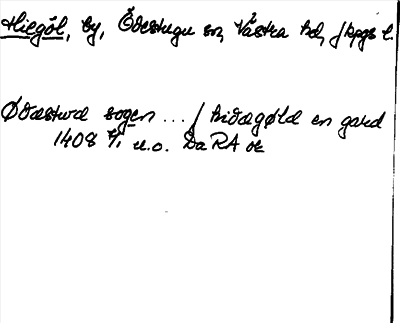 Hiegöl, by, Ödestugu sn, Västra hd, Jkpgs l.
Ødæstwd sogen ... / hidægøld en gard
1408 4/1 u.o. DaRA or